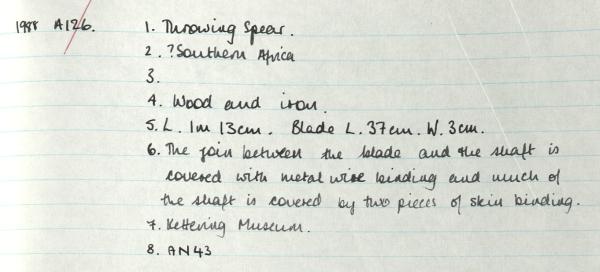 1988 A126. 1. Throwing Spear.
2. ?Southern Africa
3.
4. Wood and iron.
5. L. 1m 13cm. Blade L. 37cm. W. 3cm.
6. The join between the blade and the shaft is
covered with metal wire binding and much of
the shaft is covered by two pieces of skin binding.
7. Kettering Museum.
8. AN43